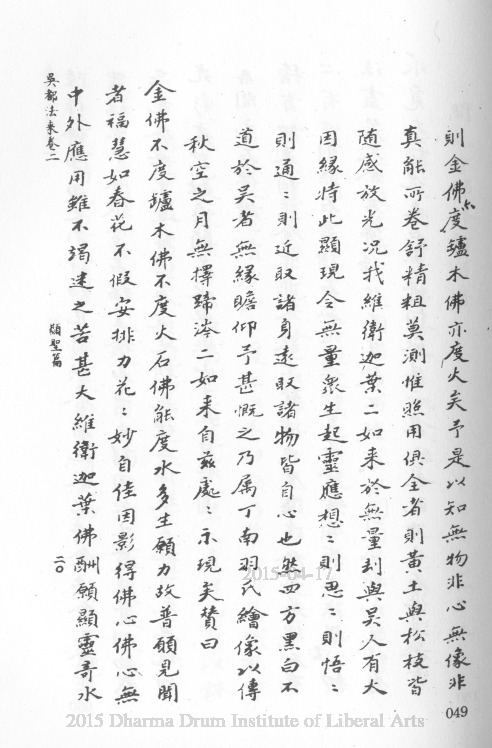 則金佛亦度鑪木佛亦度火矣予是以知無物非心無像非
真能所卷舒精粗莫測惟照用俱全者則黃土與松枝皆
隨感放光況我維衛迦葉二如來於無量刦與吳人有大
因緣特此顯現令無量衆生起靈應想〻則思〻則悟〻
則通〻則近取諸身遠取諸物皆自心也然四方黑白不
道於吳者無緣瞻仰予甚慨之乃屬丁南羽氏繪像以傳
秋空之月無擇蹄涔二如來自茲處〻示現矣贊曰
金佛不度鑪木佛不度火石佛能度水多生願力故普願見聞
者福慧如春花不假安排力花〻妙自佳因影得佛心佛心無
中外應用雖不竭迷之苦甚大維衛迦葉佛酬願顯靈奇水
吳都法乘卷二
顯聖篇
二〇
049
2015-04-17
2015 Dharma Drum Institute of Liberal Arts